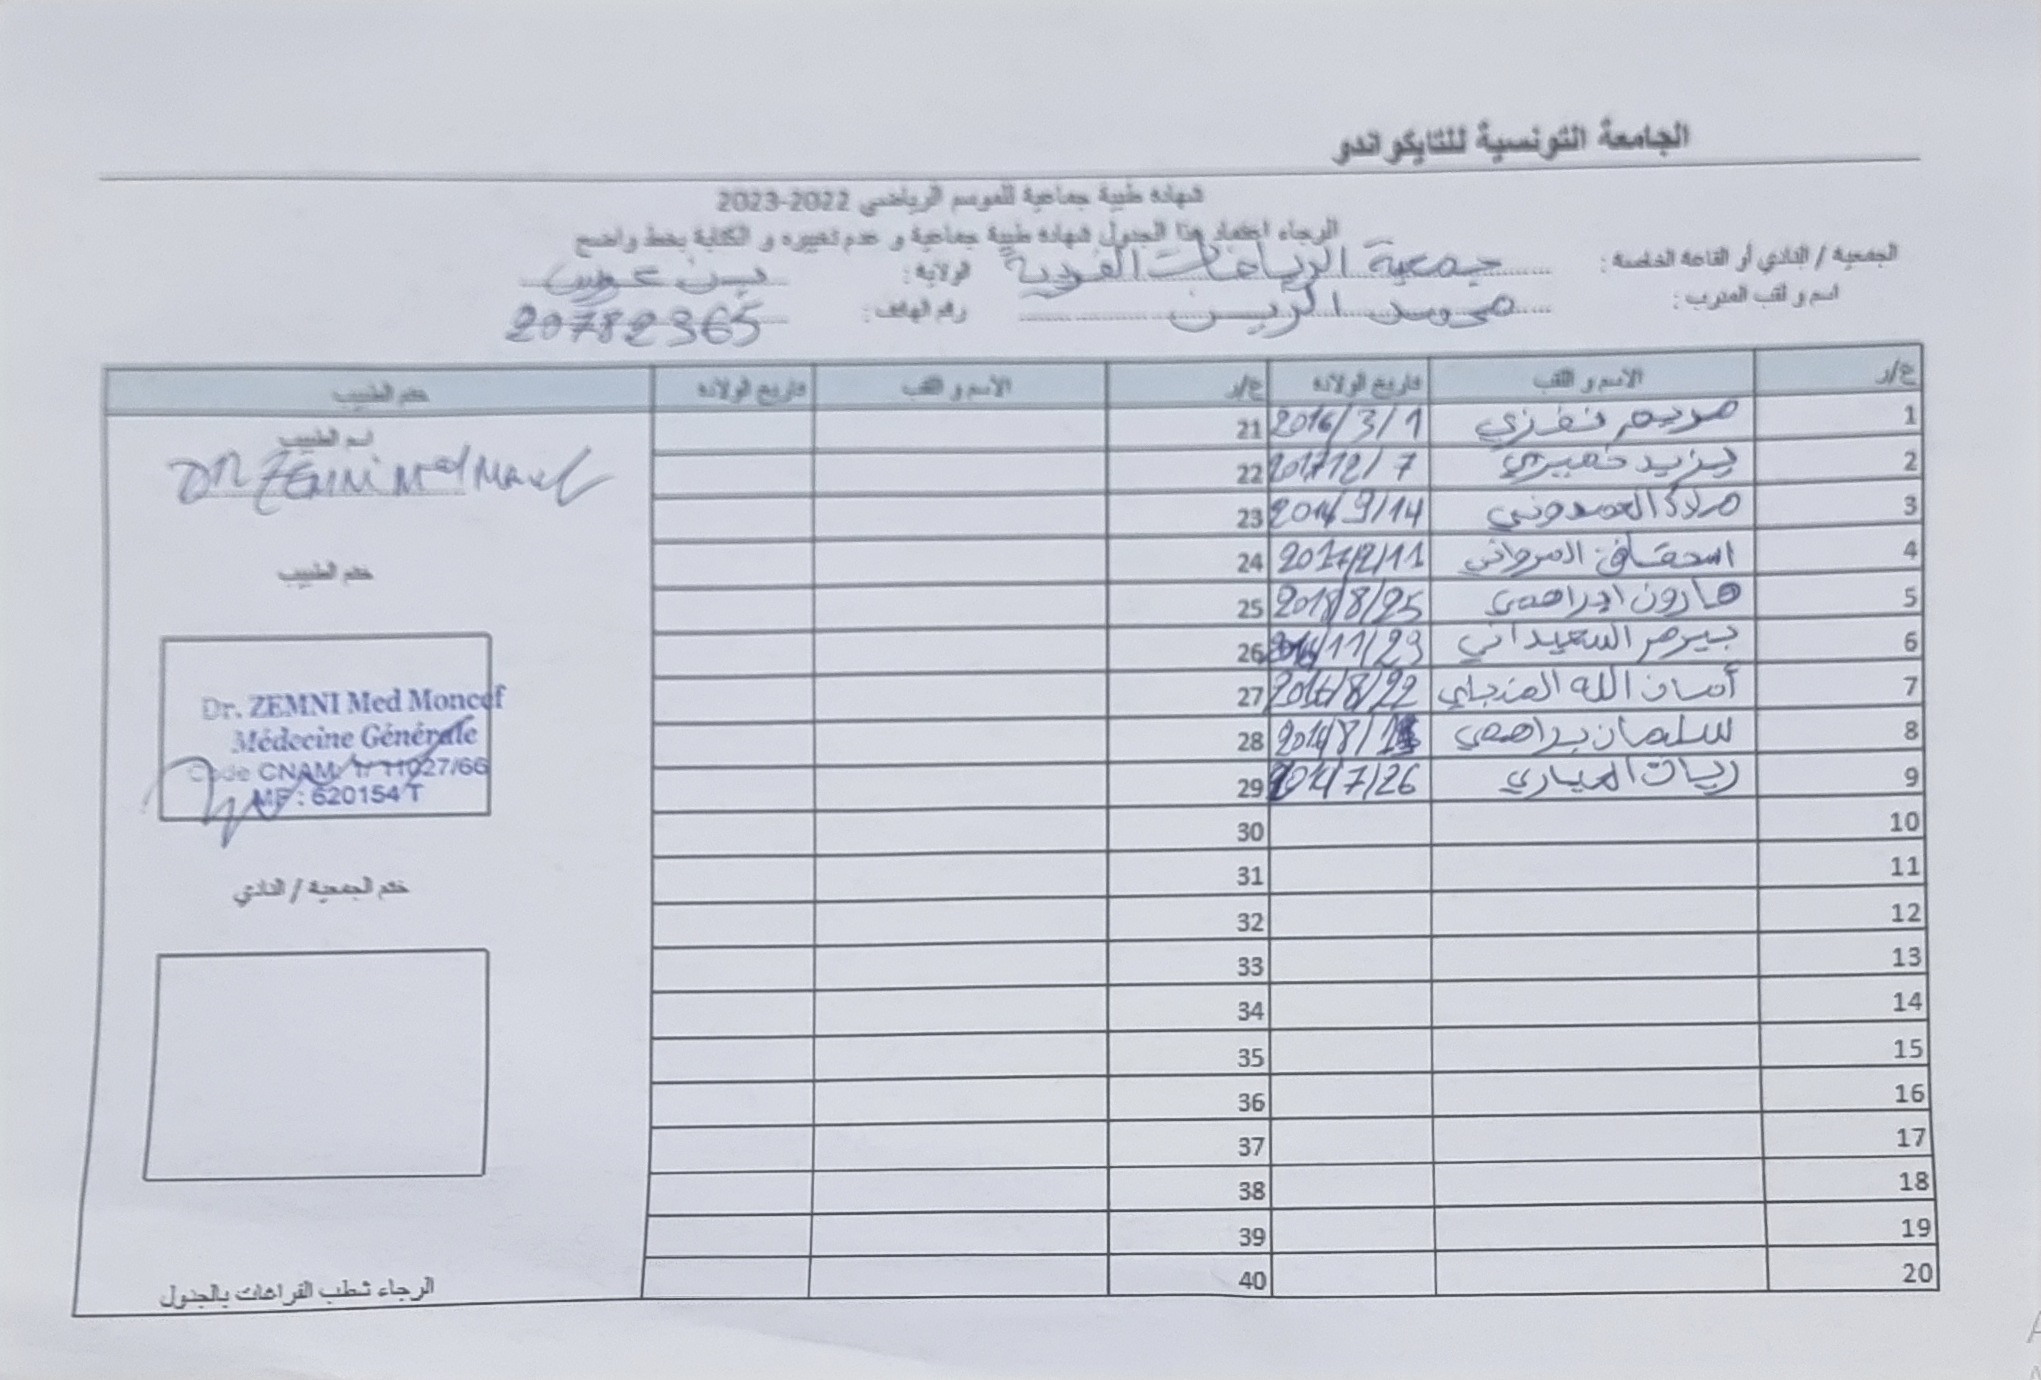 الجامعة التونسية للتايكواندو
شهادة طبية جماعية للموسم الرياضي 2022-2023
الرجاء اعتماد هذا الجدول شهادة طبية جماعية و عدم تغييره و الكتابة بخط واضح
الجمعية / النادي أو القاعة الخاصة : جمعية الرياضات الفردية الولاية : بن عروس
اسم و لقب المدرب : رقم الهاتف : 20782365
ع/ر الاسم و اللقب تاريخ الولادة ع/ر الأسم و اللقب تاريخ الولادة ختم الطبيب
1 مريم نفزي 2016/3/1 21
2 يزيد خميري 7 22
3 ملاك العمدوني 9/14 23
4 اسحاق المرواني 2017/2/11 24
5 هارون ابراهمي 2018/8/25 25
6 بيرم السعيداني 11/23 26
7 أمان الله 8/22 27
8 سلمان براهمي 28
9 ريان العياري 7/26 29
10 30
11 31
12 32
13 33
14 34
15 35
16 36
17 37
18 38
19 39
20 40
اسم الطبيب
DR ZEMNI Med
ختم الطبيب
Dr. ZEMNI Med Moncef
Médecine Générale
Code CNAM: 1/ 11027/66
MF : 620154 T
ختم الجمعية / النادي
الرجاء شطب الفراغات بالجدول